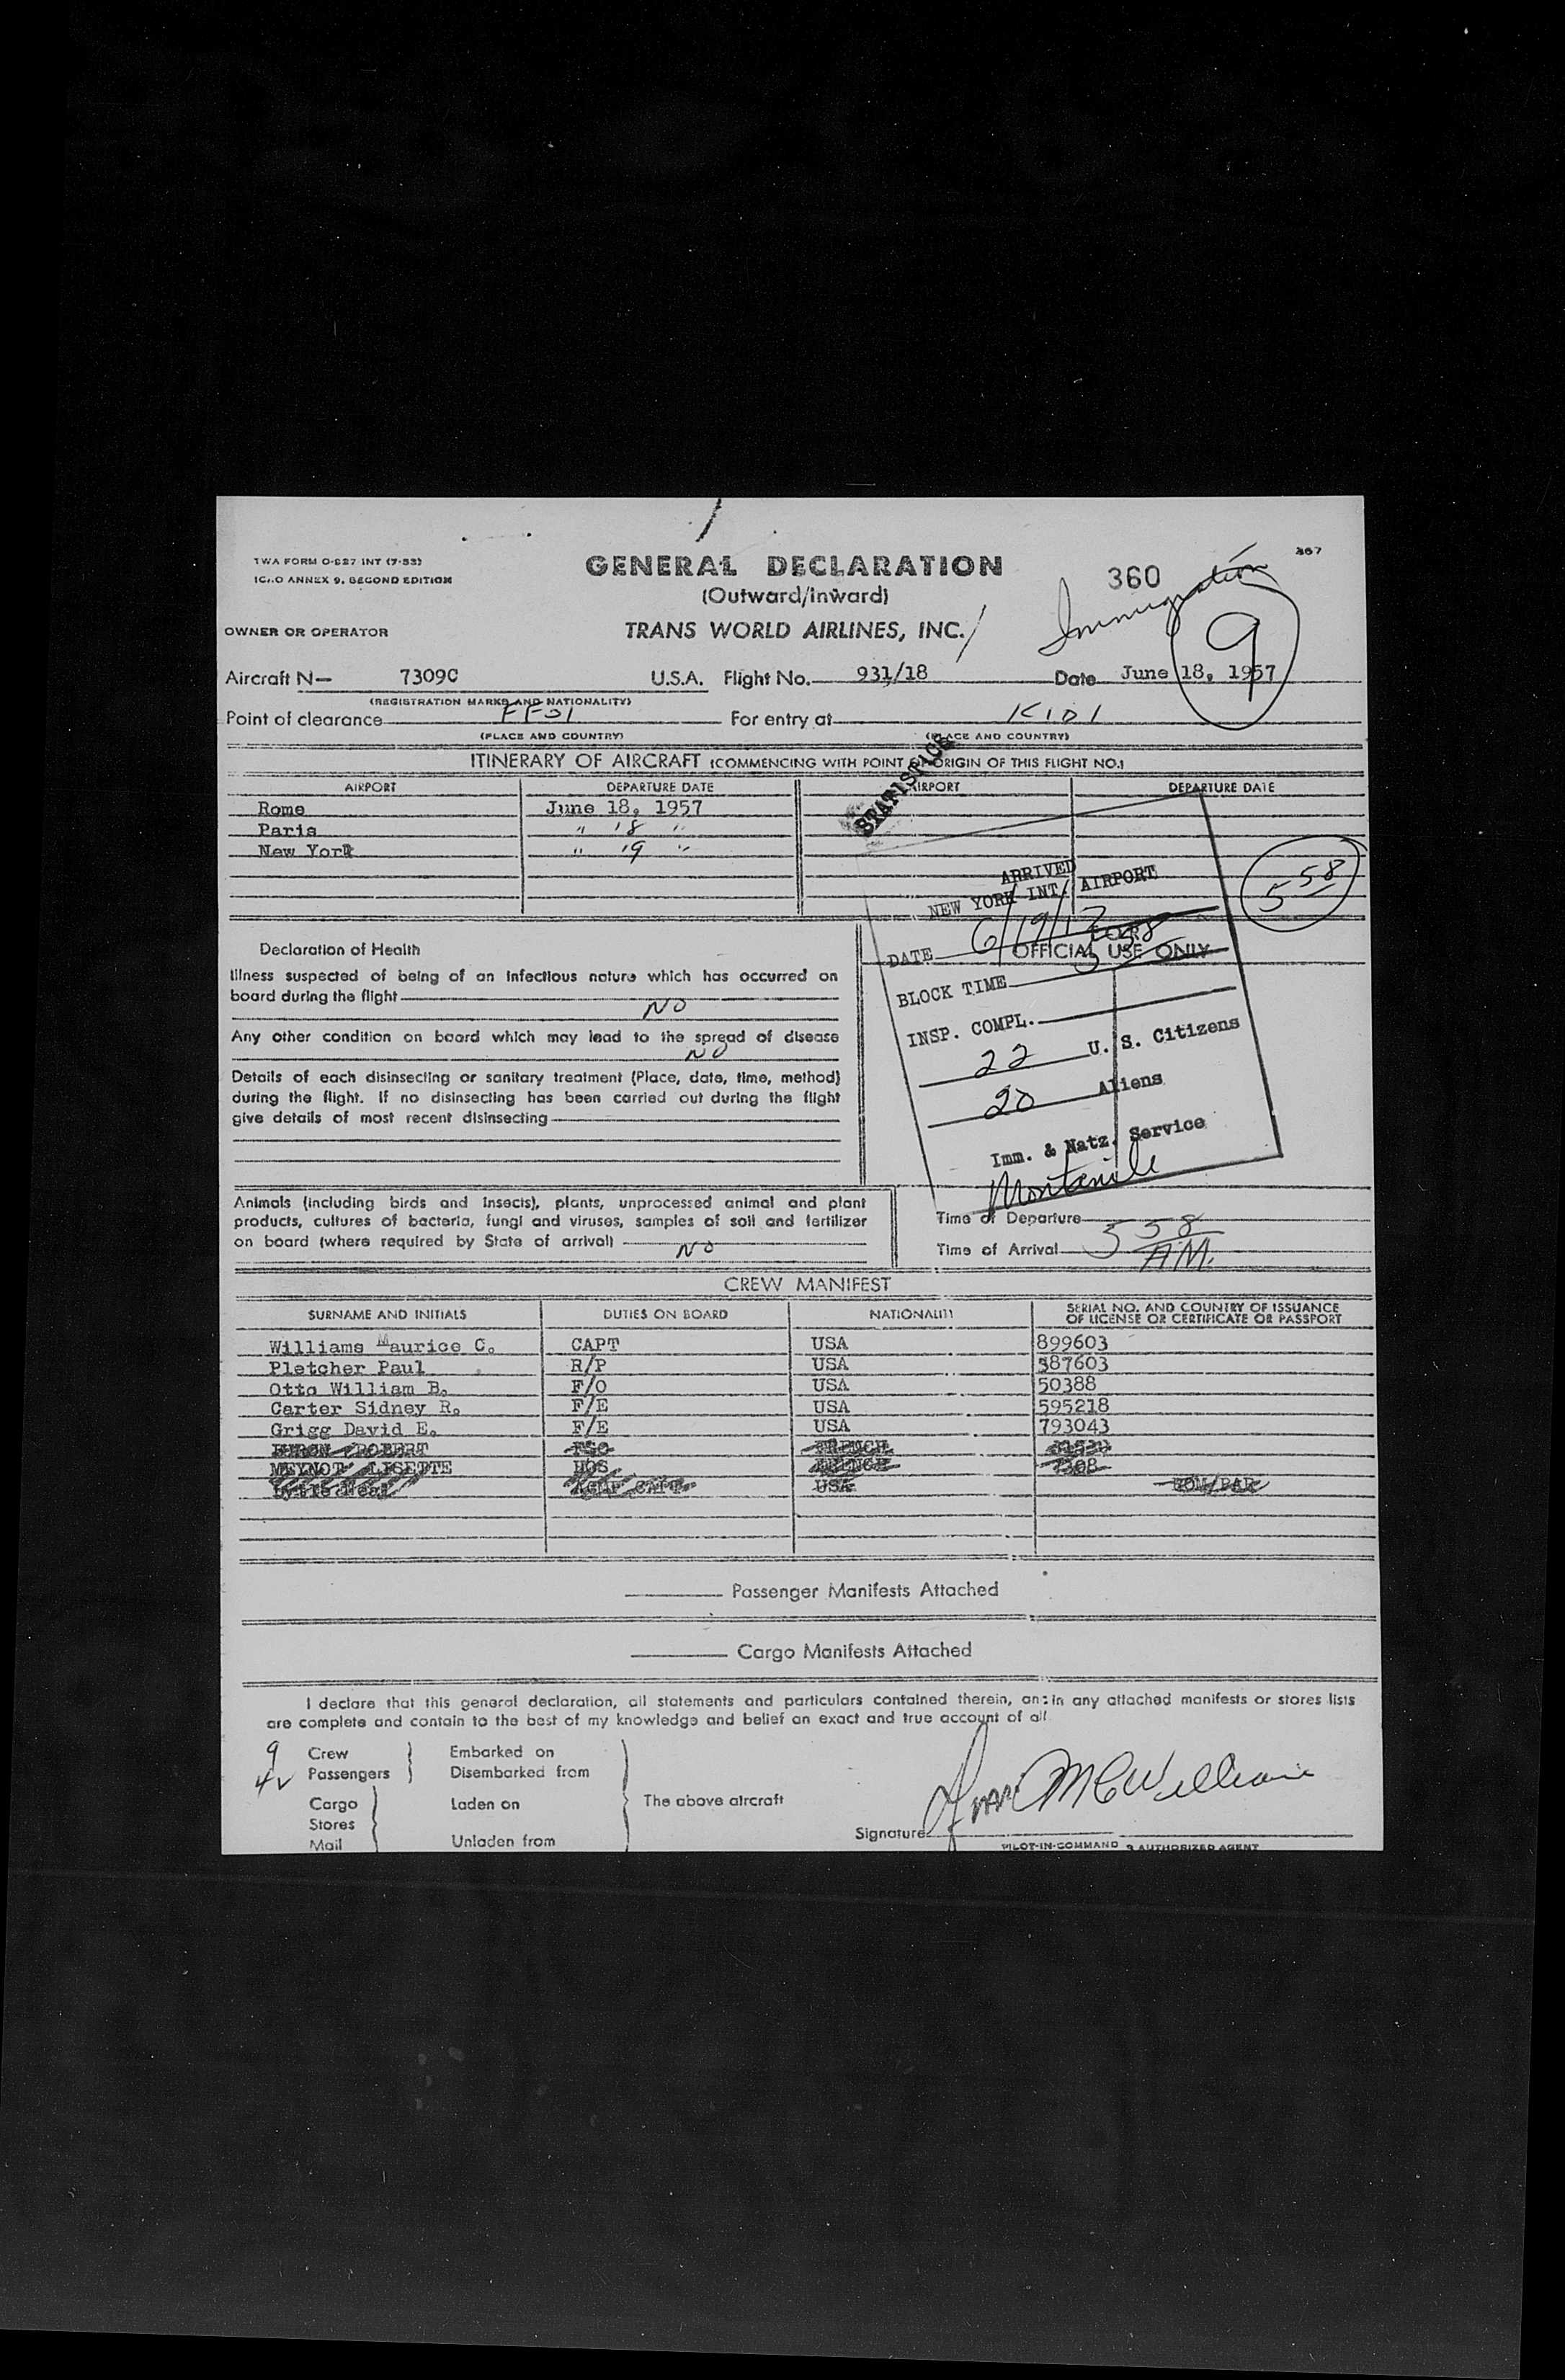 TWA FORM O-827 INT (7-53)
ICAO ANNEX 9, SECOND EDITION
GENERAL DECLARATION
(Outward/Inward)
360
367
Immigration
9
OWNER OR OPERATOR
TRANS WORLD AIRLINES, INC.
Aircraft N— 7309C U.S.A. Flight No. 931/18 Date June 18, 1957
(REGISTRATION MARKS AND NATIONALITY)
Point of clearance For entry at KIDL
(PLACE AND COUNTRY) (PLACE AND COUNTRY)
STATISTICS
ITINERARY OF AIRCRAFT (COMMENCING WITH POINT OF ORIGIN OF THIS FLIGHT NO.)
AIRPORT DEPARTURE DATE AIRPORT DEPARTURE DATE
Rome June 18, 1957
Paris " 18 "
New York " 19 "
558
ARRIVED
NEW YORK INT. AIRPORT
DATE 6/19/
558
FOR
OFFICIAL USE ONLY
BLOCK TIME
INSP. COMPL.
22 U. S. Citizens
20 Aliens
Imm. & Natz. Service
Declaration of Health
Illness suspected of being of an infectious nature which has occurred on
board during the flight
NO
Any other condition on board which may lead to the spread of disease
NO
Details of each disinsecting or sanitary treatment (Place, date, time, method)
during the flight. If no disinsecting has been carried out during the flight
give details of most recent disinsecting
Animals (including birds and insects), plants, unprocessed animal and plant
products, cultures of bacteria, fungi and viruses, samples of soil and fertilizer
on board (where required by State of arrival)
NO
Time of Departure
Time of Arrival 558 AM.
CREW MANIFEST
SURNAME AND INITIALS DUTIES ON BOARD NATIONALITY SERIAL NO. AND COUNTRY OF ISSUANCE
OF LICENSE OR CERTIFICATE OR PASSPORT
Williams Maurice C. CAPT USA 899603
Pletcher Paul R/P USA 587603
Otto William B. F/O USA 50388
Carter Sidney R. F/E USA 595218
Grigg David E. F/E USA 793043
ROBERT FRENCH
MEYNOT LISETTE HOS FRENCH 7308
USA ROM/PAR
Passenger Manifests Attached
Cargo Manifests Attached
I declare that this general declaration, all statements and particulars contained therein, and in any attached manifests or stores lists
are complete and contain to the best of my knowledge and belief an exact and true account of all
9 Crew Embarked on
42 Passengers Disembarked from
Cargo Laden on The above aircraft
Stores
Mail Unladen from
Signature MCWilliams
PILOT-IN-COMMAND AUTHORIZED AGENT